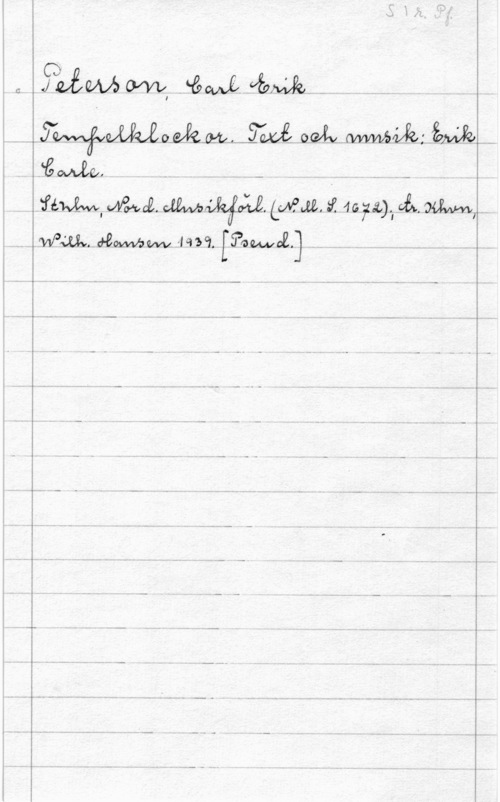 S 1 r. Pf.
Peterson, Carl Erik
Tempelklockor. Text och musik: Erik
Carle.
Sthlm, Nord. Musikförl. (N. M. S. 1672), tr. Khvn,
Wilh. Hansen 1939. [Pseud.]